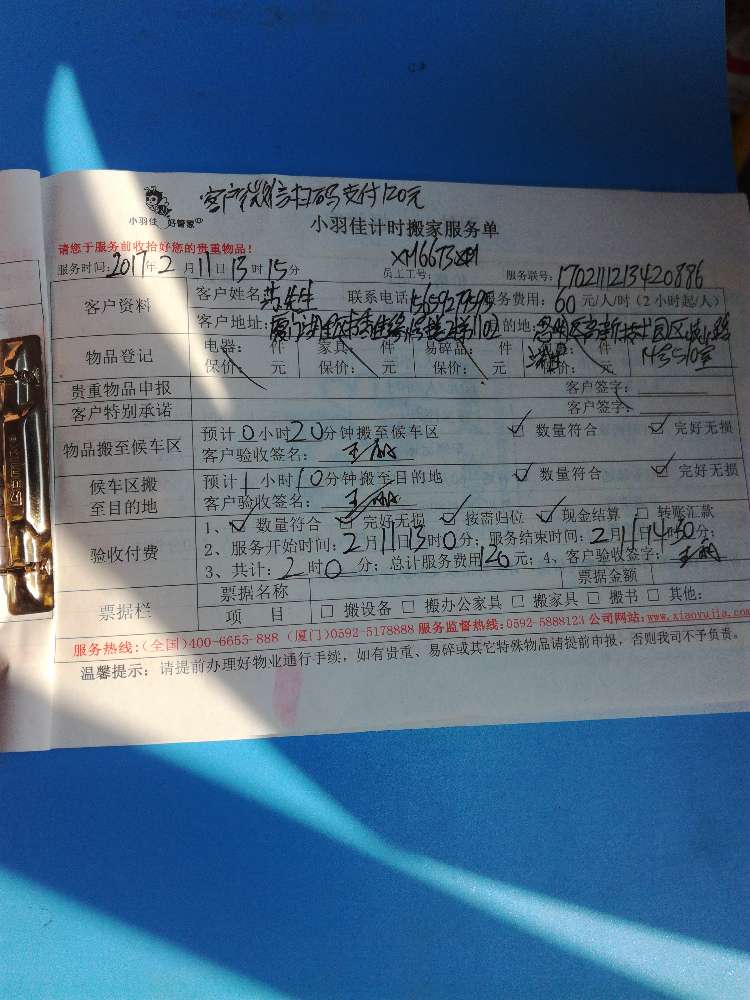 客户微信扫码支付120元
小羽佳 好管家
小羽佳计时搬家服务单
请您于服务前收拾好您的贵重物品!
XM6673
服务时间:2017年2月11日13时15分 员工工号: 服务联号:1702111213420886
客户资料 客户姓名 先生 联系电话 服务费用:60元/人/时(2小时起/人)
客户地址: 1102 的地: 高新技术园区
物品登记 电器: 件 家具: 件 易碎品: 件 件 14号510室
保价: 元 保价: 元 保价: 元 元
贵重物品申报 客户签字:
客户特别承诺 客户签字:
物品搬至候车区 预计0小时20分钟搬至候车区 ☑ 数量符合 ☑ 完好无损
客户验收签名: 王
候车区搬至目的地 预计1小时10分钟搬至目的地 ☑ 数量符合 ☑ 完好无损
客户验收签名: 王
验收付费 1、☑ 数量符合 ☑ 完好无损 ☑ 按需归位 ☑ 现金结算 □ 转账汇款
2、服务开始时间:2月11日13时0分;服务结束时间:2月11日14时50分;
3、共计:2时0分;总计服务费用120元;4、客户验收签字:王
票据栏 票据名称 票据金额
项 目 □ 搬设备 □ 搬办公家具 □ 搬家具 □ 搬书 □ 其他:
服务热线:(全国)400-6655-888 (厦门)0592-5178888 服务监督热线:0592-5888123 公司网站:www.xiaoyujia.com
温馨提示:请提前办理好物业通行手续,如有贵重、易碎或其它特殊物品请提前申报,否则我司不予负责。